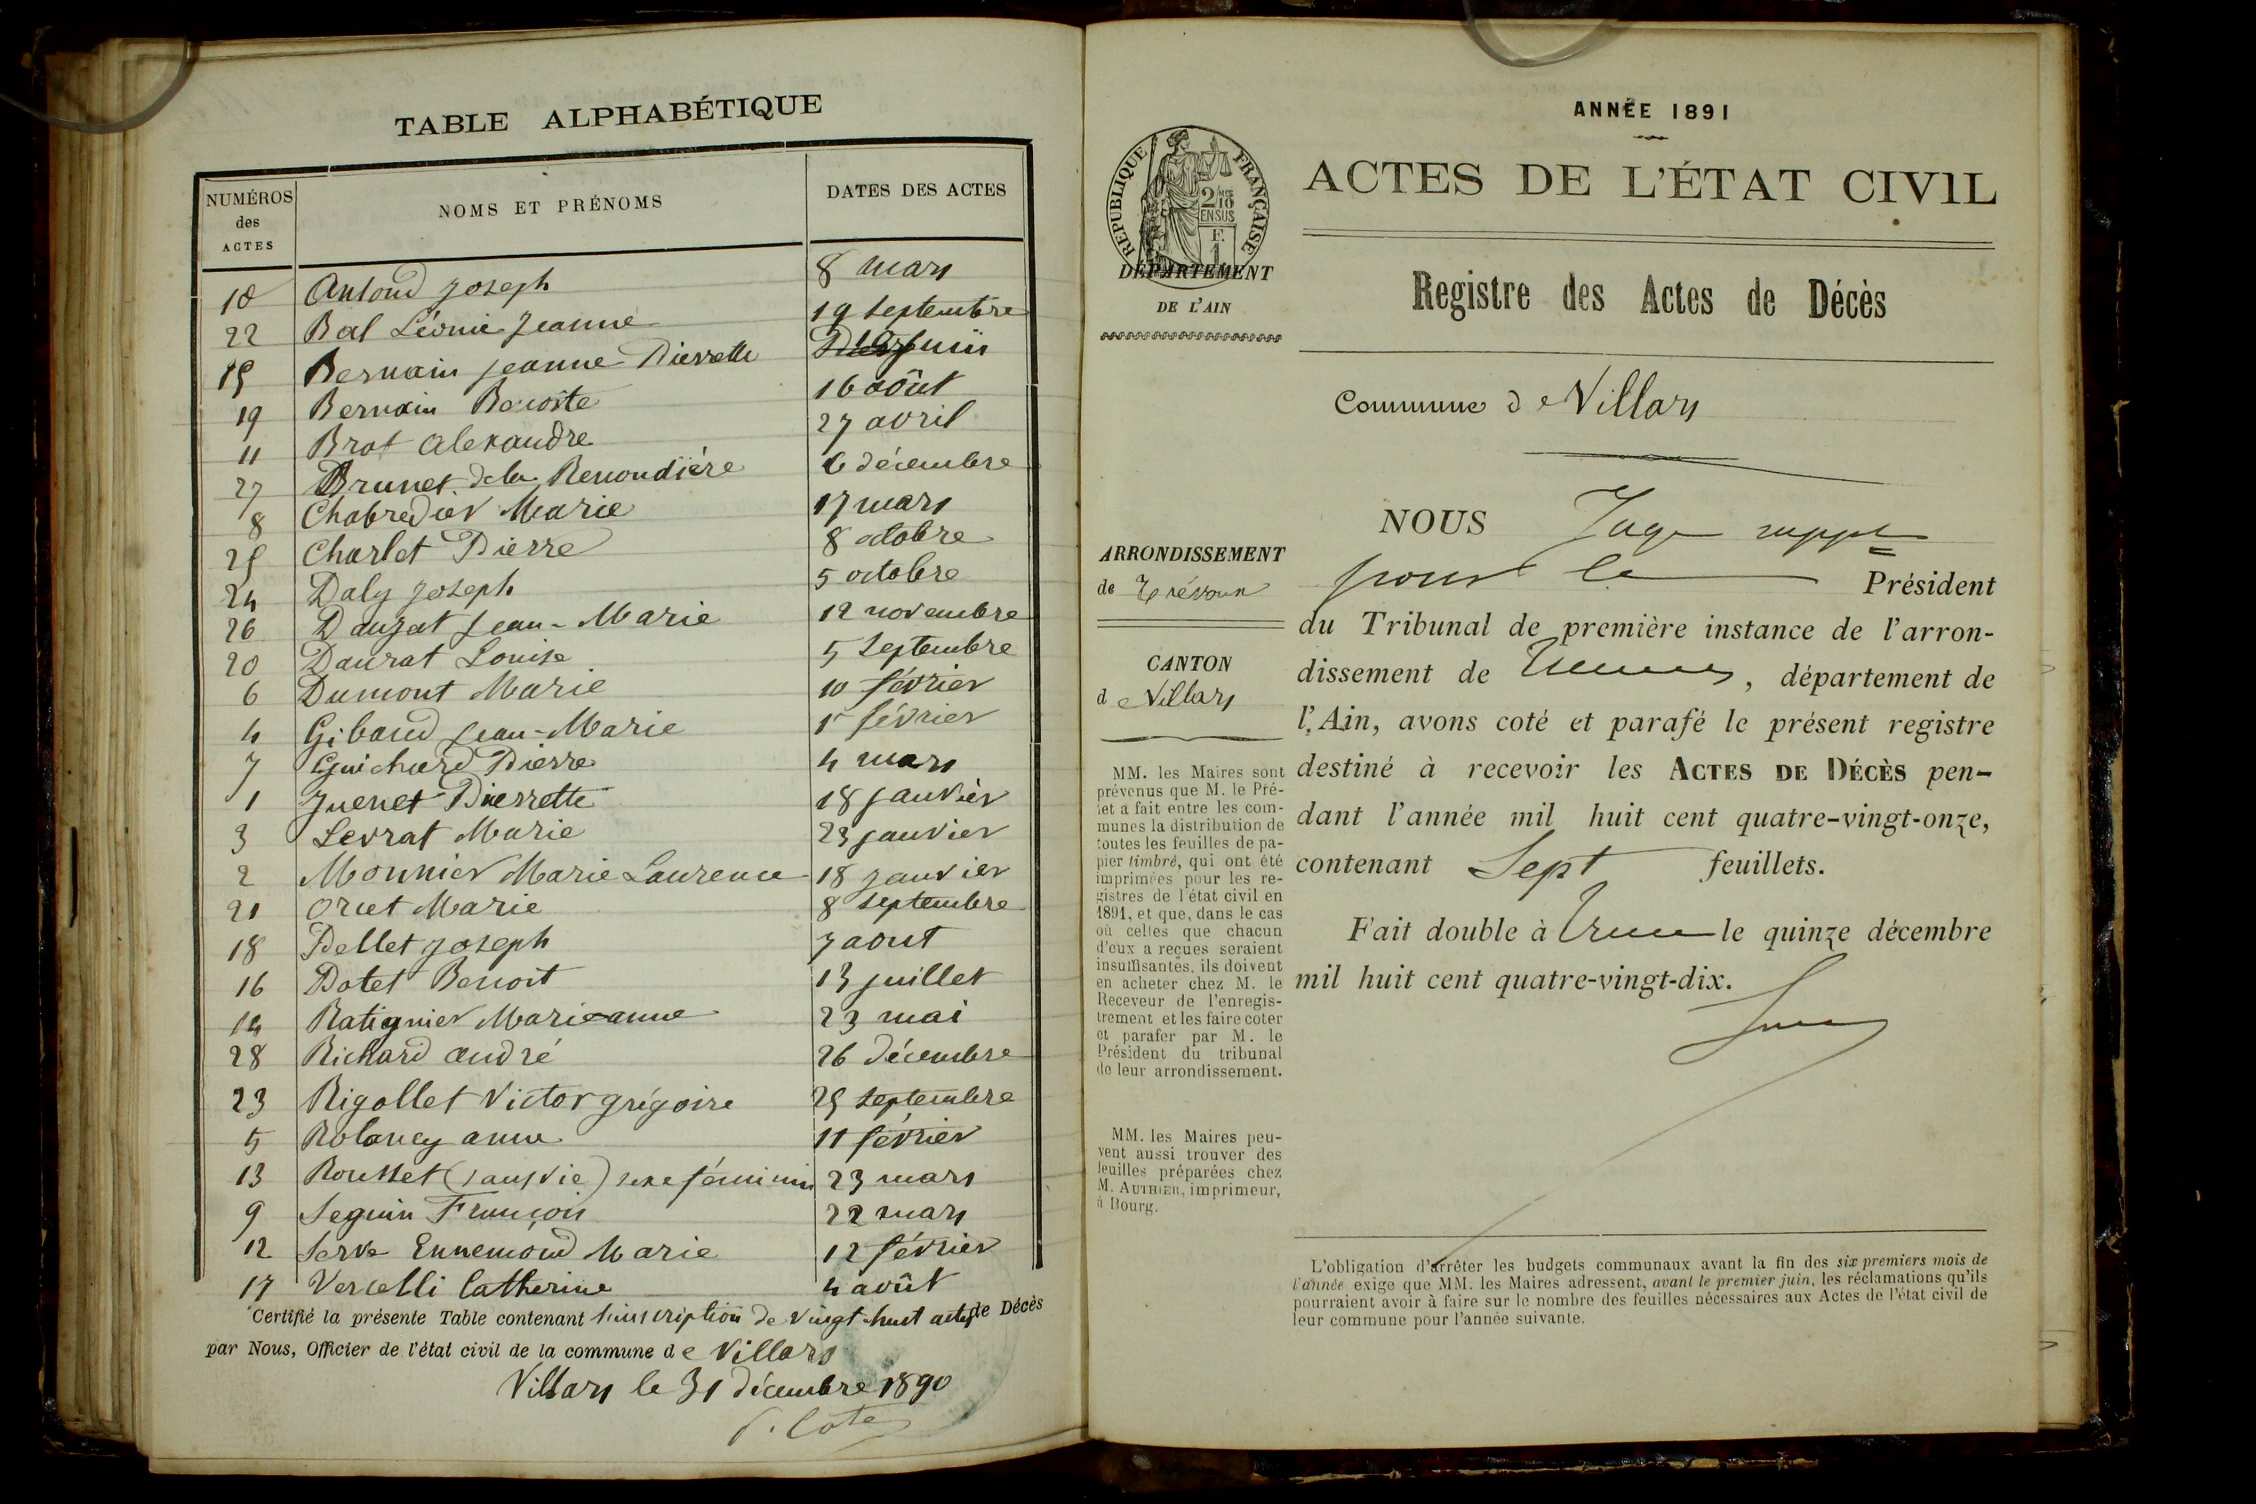 TABLE ALPHABÉTIQUE
NUMÉROS des ACTES NOMS ET PRÉNOMS DATES DES ACTES
10 Antoud Joseph 8 mars
22 Bal Léonie Jeanne 19 septembre
15 Bernain Jeanne Pierrette juin
19 Bernain Benoîte 16 août
11 Brot Alexandre 27 avril
27 Brunet de la Renoudière 6 décembre
8 Chabredier Marie 17 mars
25 Charlet Pierre 8 octobre
24 Daly Joseph 5 octobre
26 Dauzat Jean-Marie 12 novembre
20 Daurat Louise 5 septembre
6 Dumont Marie 10 février
4 Gibaud Jean-Marie 1r février
7 Guichard Pierre 4 mars
1 Juenet Pierrette 18 janvier
3 Levrat Marie 23 janvier
2 Monnier Marie Laurence 18 janvier
21 Oruet Marie 8 septembre
18 Pellet Joseph 7 aout
16 Potet Benoit 13 juillet
14 Ratignier Marieanne 23 mai
28 Richard André 26 décembre
23 Rigollet Victor grégoire 25 septembre
5 Rolancy anne 11 février
13 Rousset (sans vie) sexe féminin 23 mars
9 Seguin François 22 mars
12 Serve Ennemond Marie 12 février
17 Vercelli Catherine 4 août
Certifié la présente Table contenant l'inscription de vingt-huit actes de Décès
par Nous, Officier de l'état civil de la commune de Villars
Villars le 31 décembre 1890
P. Cote
ANNÉE 1891
RÉPUBLIQUE FRANÇAISE
2/10 EN SUS
F. 1
DÉPARTEMENT
DE L'AIN
ACTES DE L'ÉTAT CIVIL
Registre des Actes de Décès
Commune de Villars
ARRONDISSEMENT
de Trévoux
CANTON
de Villars
MM. les Maires sont
prévenus que M. le Pré-
fet a fait entre les com-
munes la distribution de
toutes les feuilles de pa-
pier timbré, qui ont été
imprimées pour les re-
gistres de l'état civil en
1891, et que, dans le cas
où celles que chacun
d'eux a reçues seraient
insuffisantes, ils doivent
en acheter chez M. le
Receveur de l'enregis-
trement et les faire coter
et parafer par M. le
Président du tribunal
de leur arrondissement.
MM. les Maires peu-
vent aussi trouver des
feuilles préparées chez
M. AUTHIER, imprimeur,
à Bourg.
NOUS Juge suppt
pour le Président
du Tribunal de première instance de l'arron-
dissement de Trévoux, département de
l'Ain, avons coté et parafé le présent registre
destiné à recevoir les ACTES DE DÉCÈS pen-
dant l'année mil huit cent quatre-vingt-onze,
contenant Sept feuillets.
Fait double à Trévoux le quinze décembre
mil huit cent quatre-vingt-dix.
L'obligation d'arrêter les budgets communaux avant la fin des six premiers mois de
l'année exige que MM. les Maires adressent, avant le premier juin, les réclamations qu'ils
pourraient avoir à faire sur le nombre des feuilles nécessaires aux Actes de l'état civil de
leur commune pour l'année suivante.